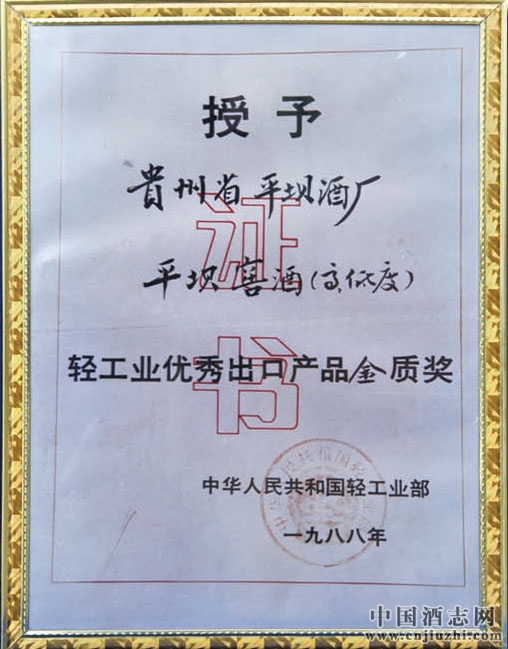 授予
貴州省平坝酒厂
平坝窖酒(高、低度)
证书
轻工业优秀出口产品金质奖
中华人民共和国轻工业部
一九八八年
中国酒志网
www.cnjiuzhi.com